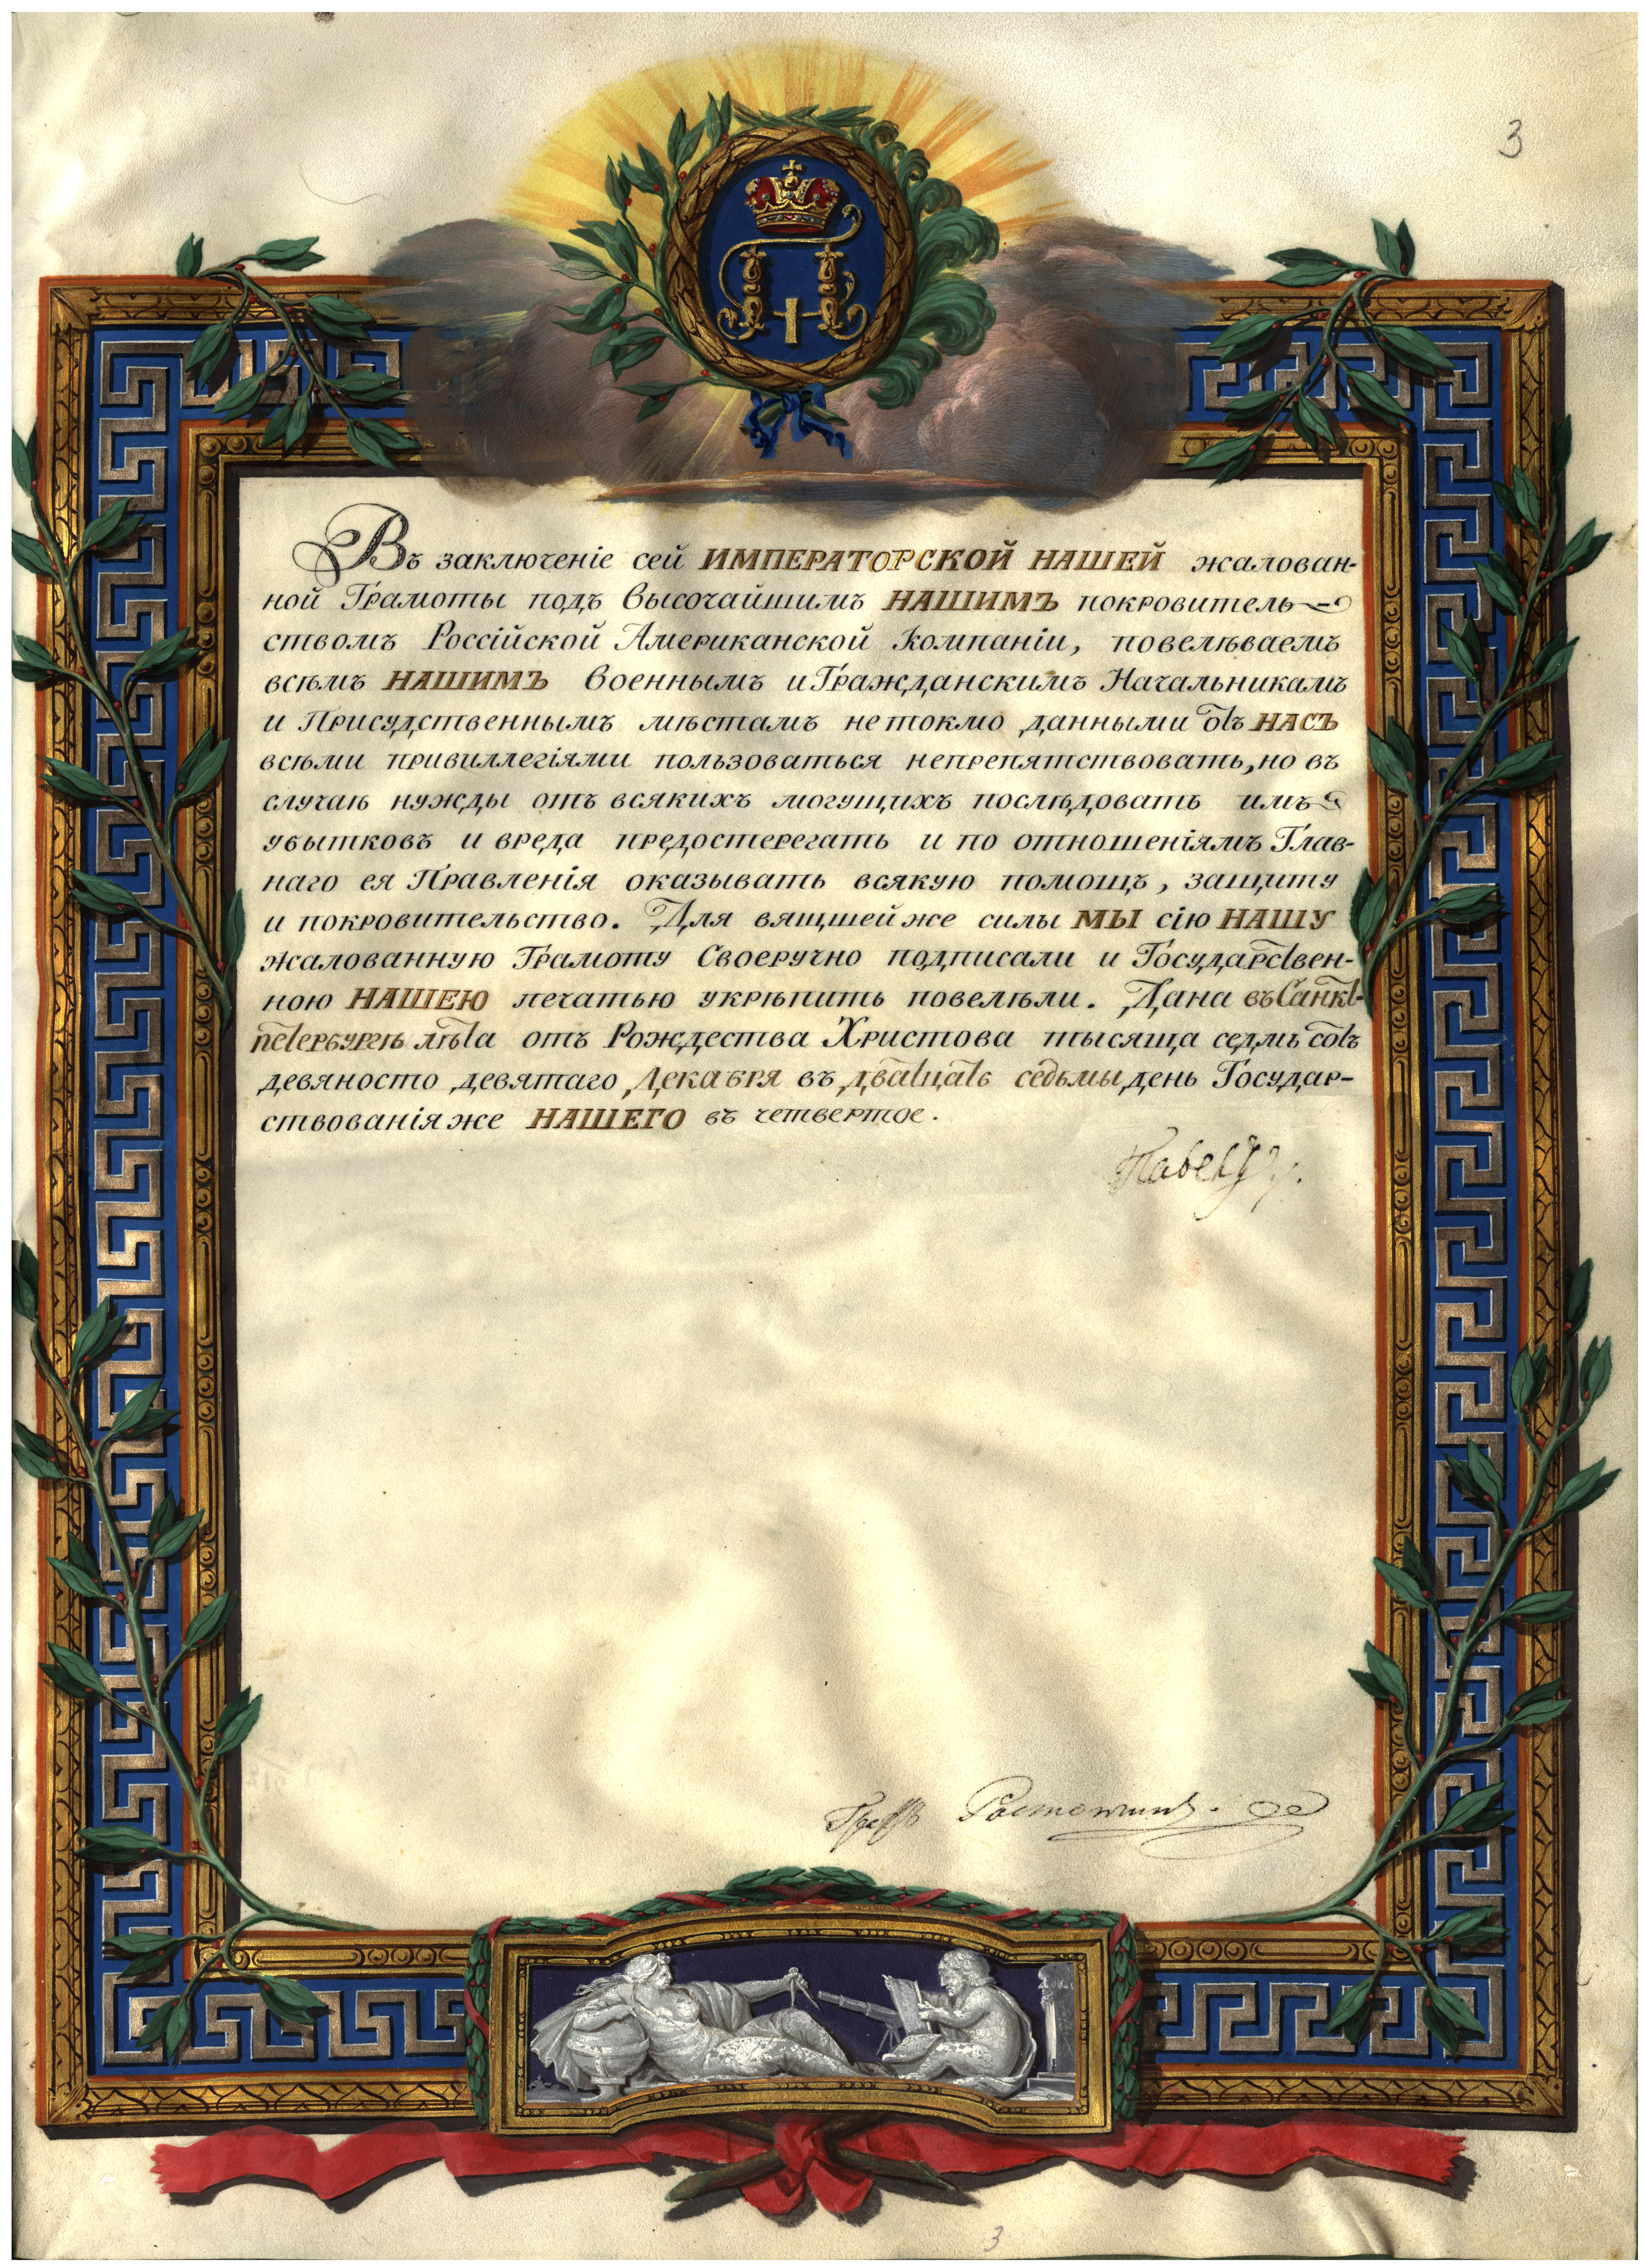 3
П I
Въ заключеніе сей ИМПЕРАТОРСКОЙ НАШЕЙ жалован-
ной Грамоты подъ Высочайшимъ НАШИМЪ покровитель-
ствомъ Россійской Американской Компаніи, повелѣваемъ
всѣмъ НАШИМЪ Военнымъ и Гражданскимъ Начальникамъ
и Присудственнымъ мѣстамъ не токмо данными отъ НАСЪ
всѣми привиллегіями пользоваться непрепятствовать, но въ
случаѣ нужды отъ всякихъ могущихъ послѣдовать имъ
убытковъ и вреда предостерегать и по отношеніямъ Глав-
наго ея Правленія оказывать всякую помощь, защиту
и покровительство. Для вящшей же силы МЫ сію НАШУ
жалованную Грамоту Своеручно подписали и Государствен-
ною НАШЕЮ печатью укрѣпить повелѣли. Дана въ Санкт-
петербургѣ лѣта отъ Рождества Христова тысяща седмь сотъ
девяносто девятаго, Декабря въ дватцать седьмы день Государ-
ствованія же НАШЕГО въ четвертое.
Павелъ
Графъ Растопчинъ.
3